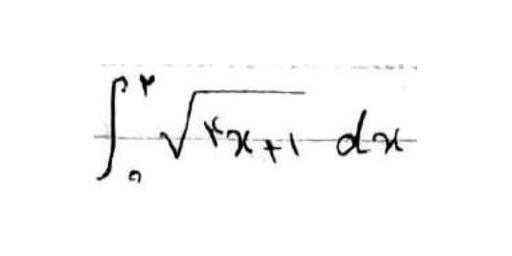 ∫₀^۲ √(۴x+۱) dx